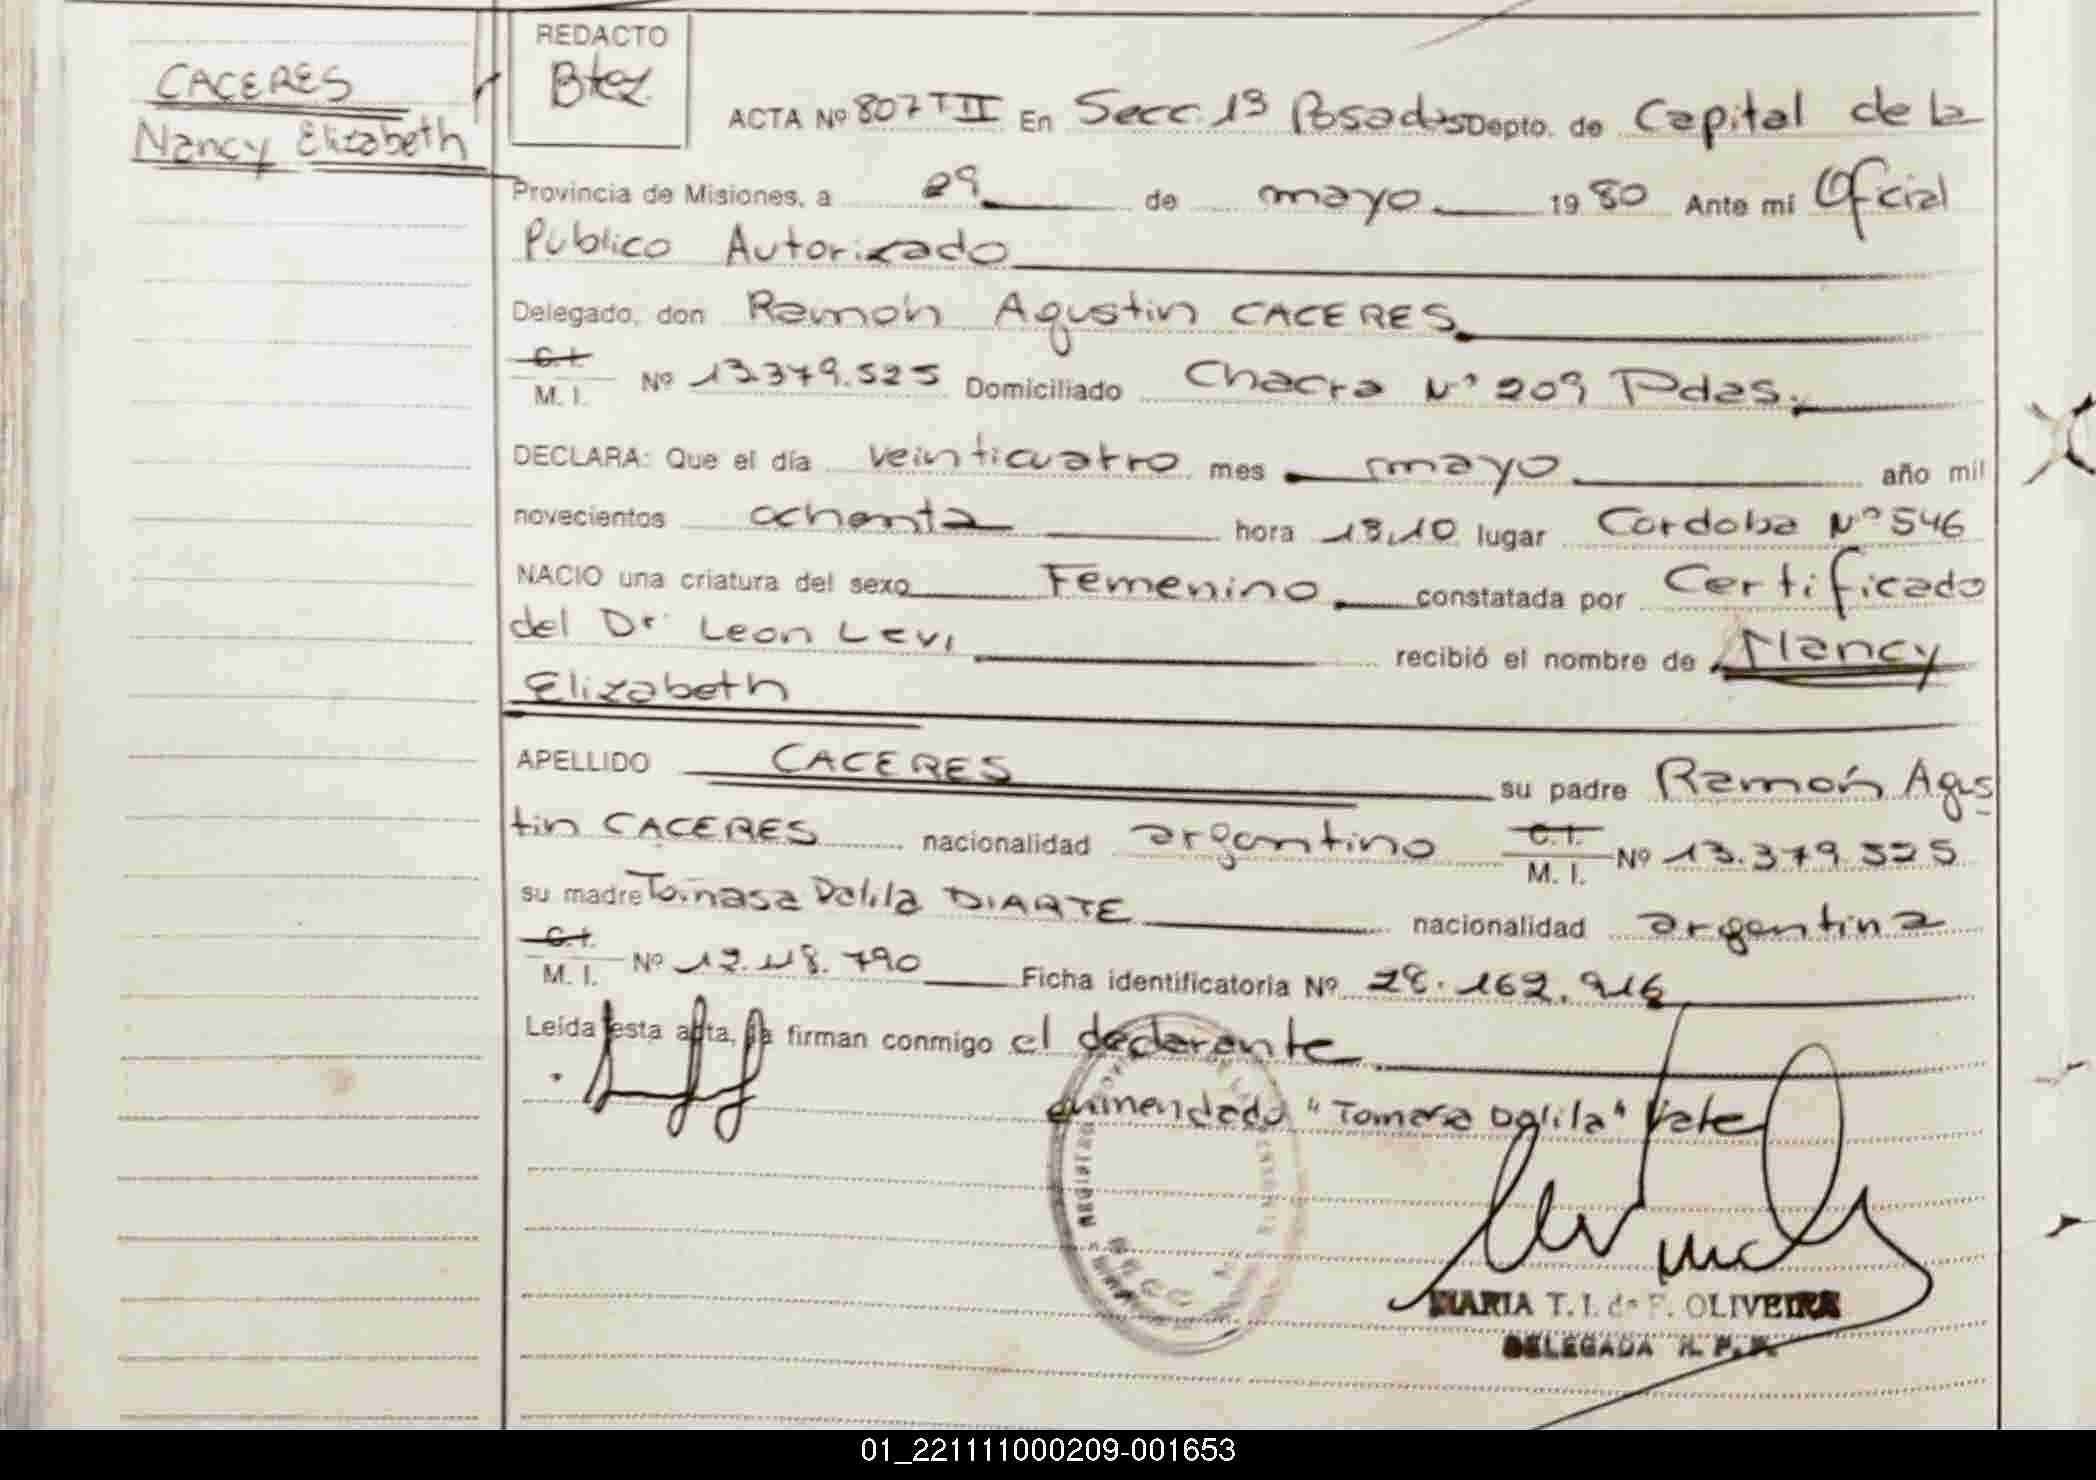 CACERES
Nancy Elizabeth
REDACTO
Btez
ACTA Nº 807 T II En Secc. 1ª Posadas Depto. de Capital de la
Provincia de Misiones, a 29 de mayo 1980 Ante mi Oficial
Publico Autorizado
Delegado, don Ramón Agustin CACERES
C.I.
M. I. Nº 13.379.525 Domiciliado Chacra Nº 209 Pdas.
DECLARA: Que el día veinticuatro mes mayo año mil
novecientos ochenta hora 13,10 lugar Cordoba Nº 546
NACIO una criatura del sexo Femenino constatada por Certificado
del Dr Leon Levi recibió el nombre de Nancy
Elizabeth
APELLIDO CACERES su padre Ramón Agus
tin CACERES nacionalidad argentino C.I.
M. I. Nº 13.379.525
su madre Tomasa Dalila DIARTE nacionalidad argentina
C.I.
M. I. Nº Ficha identificatoria Nº 28.162.916
Leída esta acta, la firman conmigo el declarante
enmendado "Tomasa Dalila" Vale
MARIA T. I. de F. OLIVEIRA
DELEGADA R. P. P.
01_221111000209-001653